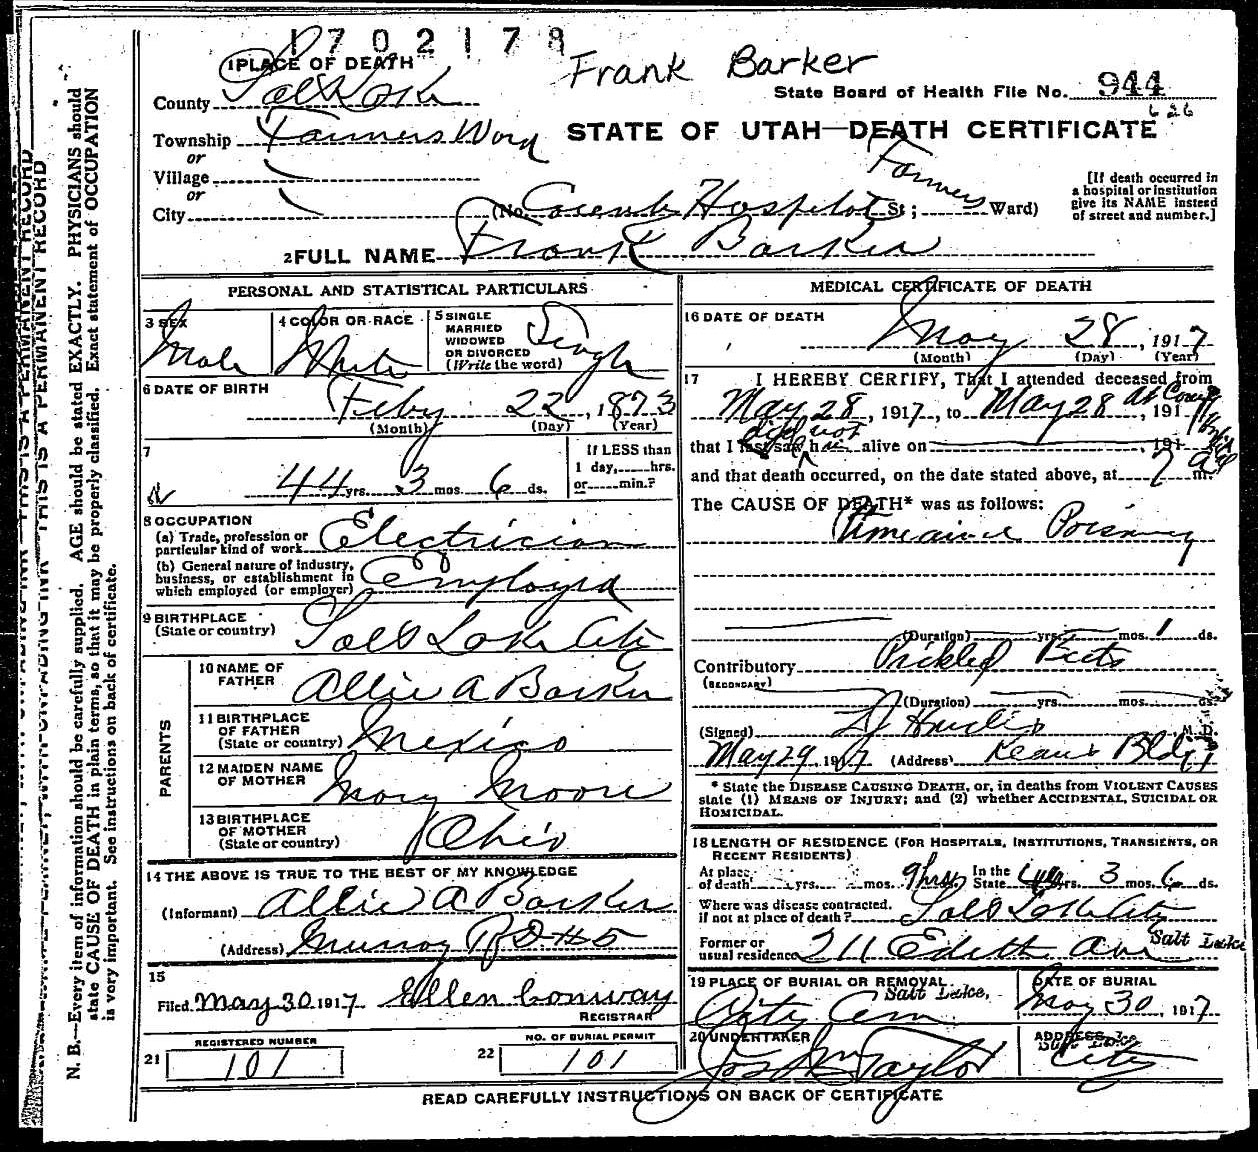 1702178
Frank Barker
1 PLACE OF DEATH
State Board of Health File No. 944
County Salt Lake
626
Township Farmers Ward
STATE OF UTAH—DEATH CERTIFICATE
or
Village
or
City (No. Hospital St; Farmers Ward)
[If death occurred in a hospital or institution give its NAME instead of street and number.]
2 FULL NAME Frank Barker
PERSONAL AND STATISTICAL PARTICULARS
3 SEX Male
4 COLOR OR RACE White
5 SINGLE MARRIED WIDOWED OR DIVORCED (Write the word) Single
6 DATE OF BIRTH Feby 22, 1873
(Month) (Day) (Year)
7 44 yrs. 3 mos. 6 ds.
If LESS than 1 day, hrs. or min.?
8 OCCUPATION
(a) Trade, profession or particular kind of work Electrician
(b) General nature of industry, business, or establishment in which employed (or employer) Employed
9 BIRTHPLACE (State or country) Salt Lake City
PARENTS
10 NAME OF FATHER Allie A Barker
11 BIRTHPLACE OF FATHER (State or country) Mexico
12 MAIDEN NAME OF MOTHER Mary Moore
13 BIRTHPLACE OF MOTHER (State or country) Ohio
14 THE ABOVE IS TRUE TO THE BEST OF MY KNOWLEDGE
(Informant) Allie A Barker
(Address) Murray RD #5
15
Filed May 30 1917 Ellen Conway
REGISTRAR
21 REGISTERED NUMBER 101
22 NO. OF BURIAL PERMIT 101
MEDICAL CERTIFICATE OF DEATH
16 DATE OF DEATH
May 28, 1917
(Month) (Day) (Year)
17 I HEREBY CERTIFY, That I attended deceased from
May 28, 1917, to May 28, 191
that I last saw did not h alive on , 191
and that death occurred, on the date stated above, at 7 m.
The CAUSE OF DEATH* was as follows:
Ptomaine Poisning
(Duration) yrs. mos. 1 ds.
Contributory Pickled Beets
(SECONDARY)
(Duration) yrs. mos. ds.
(Signed) M. D.
May 29, 1917 (Address) Bldg
* State the DISEASE CAUSING DEATH, or, in deaths from VIOLENT CAUSES state (1) MEANS OF INJURY; and (2) whether ACCIDENTAL, SUICIDAL OR HOMICIDAL.
18 LENGTH OF RESIDENCE (FOR HOSPITALS, INSTITUTIONS, TRANSIENTS, OR RECENT RESIDENTS)
At place of death yrs. mos. 9 hrs In the State 44 yrs. 3 mos. 6 ds.
Where was disease contracted, if not at place of death? Salt Lake City
Former or usual residence 211 Edith Ave Salt Lake
19 PLACE OF BURIAL OR REMOVAL Salt Lake, City Cem
DATE OF BURIAL May 30, 1917
20 UNDERTAKER Jos Wm Taylor
ADDRESS City
READ CAREFULLY INSTRUCTIONS ON BACK OF CERTIFICATE
THIS IS A PERMANENT RECORD
N. B.—Every item of information should be carefully supplied. AGE should be stated EXACTLY. PHYSICIANS should
state CAUSE OF DEATH in plain terms, so that it may be properly classified. Exact statement of OCCUPATION
is very important. See instructions on back of certificate.